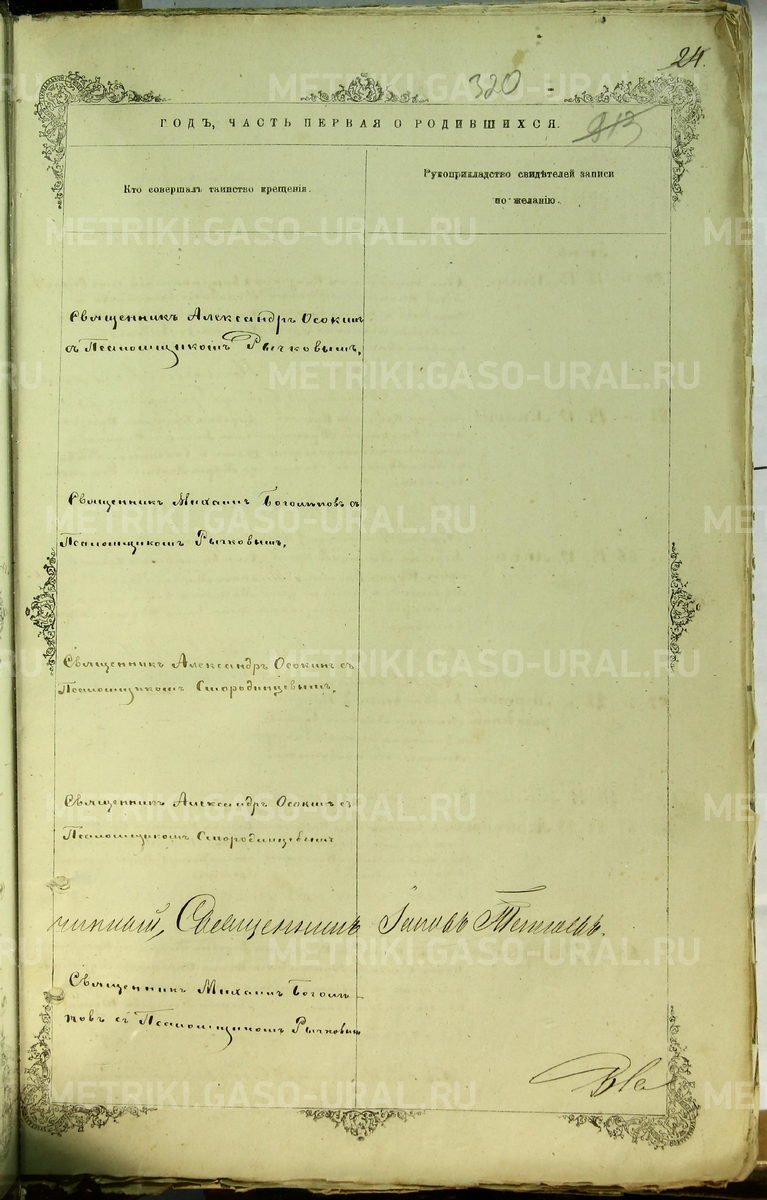 24.
320
313
ГОДЪ, ЧАСТЬ ПЕРВАЯ О РОДИВШИХСЯ.
Кто совершалъ таинство крещенія.
Рукоприкладство свидѣтелей записи
по желанію.
Священникъ Александръ Осокинъ
съ Псаломщикомъ Рычковымъ,
Священникъ Михаилъ Боголѣповъ съ
Псаломщикомъ Рычковымъ,
Священникъ Александръ Осокинъ съ
Псаломщикомъ Смородинцевымъ,
Священникъ Александръ Осокинъ съ
Псаломщикомъ Смородинцевымъ
чинный, Священникъ Іаковъ
Священникъ Михаилъ Боголѣ-
повъ съ Псаломщикомъ Рычковымъ
METRIKI.GASO-URAL.RU